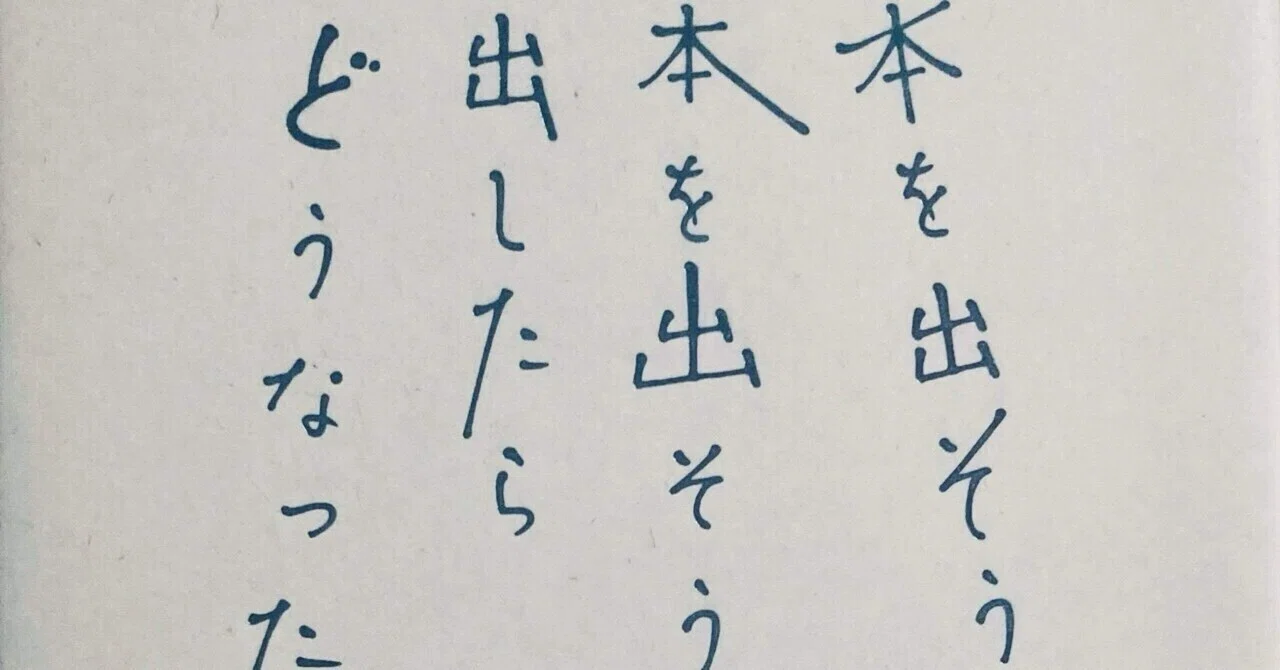 本を出そう
本を出そう
出したら
どうなった